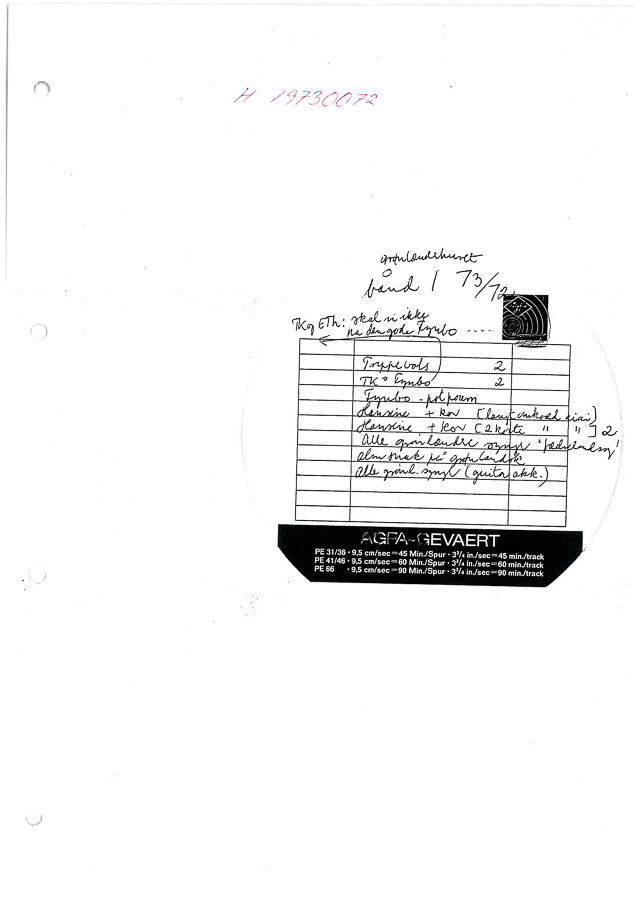 H 19730072
grønlandshuset
bånd 1 73/72
TK og ETh: skal vi ikke
na den gode Fynbo ----
Trippevals 2
TK° Fynbo 2
Fynbo - potpourri
Hansine + kor [langt omkvæd eiai)
Hansine + kor [2 korte " " ] 2
Alle grønlændre synger 'fædrelandssg'
alm snak på grønlandsk
alle grønl. synger (guitar akk.)
AGFA-GEVAERT
PE 31/36 · 9,5 cm/sec = 45 Min./Spur · 3¾ in./sec = 45 min./track
PE 41/46 · 9,5 cm/sec = 60 Min./Spur · 3¾ in./sec = 60 min./track
PE 66 · 9,5 cm/sec = 90 Min./Spur · 3¾ in./sec = 90 min./track